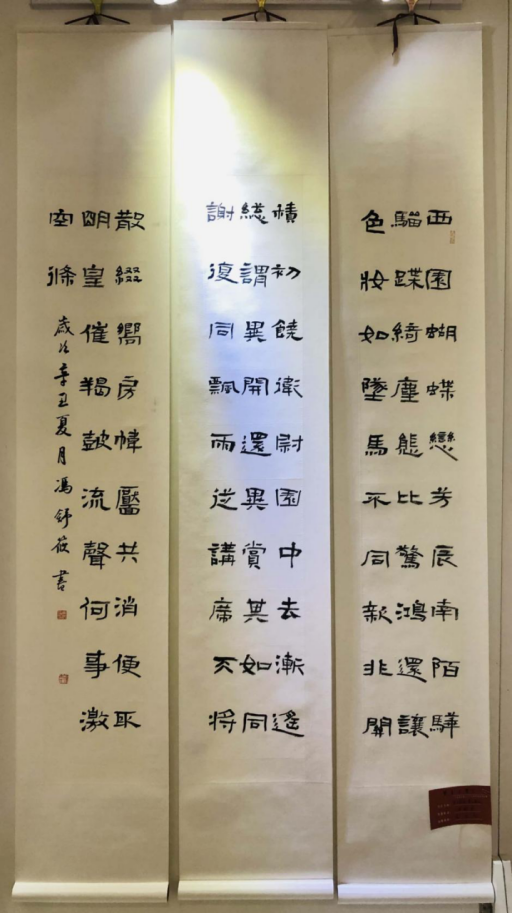 西園蝴蝶戀芳辰南陌驊
騮蹀綺塵態比驚鴻還讓
色妝如墜馬不同新非關
積初饒衛尉園中去漸遙
總謂異開還異賞其如同
謝復同飄雨從講席天將
散綴繡房幃靨共消便取
明皇催羯鼓流聲何事激
空條
歲次辛丑夏月馮舒筱書